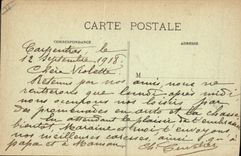 CARTE POSTALE
CORRESPONDANCE
ADRESSE
Carpentras le
12 Septembre 1918
Chère Violette
Retenus par nos amis, nous ne
rentrerons que lundi après midi
nous occupons nos loisirs par
des promenades en auto et la chasse
En attendant le plaisir de t'embrasser
bientôt, Maraine et moi t'envoyons
nos meilleures caresses, ainsi qu'à
papa et à Maman.